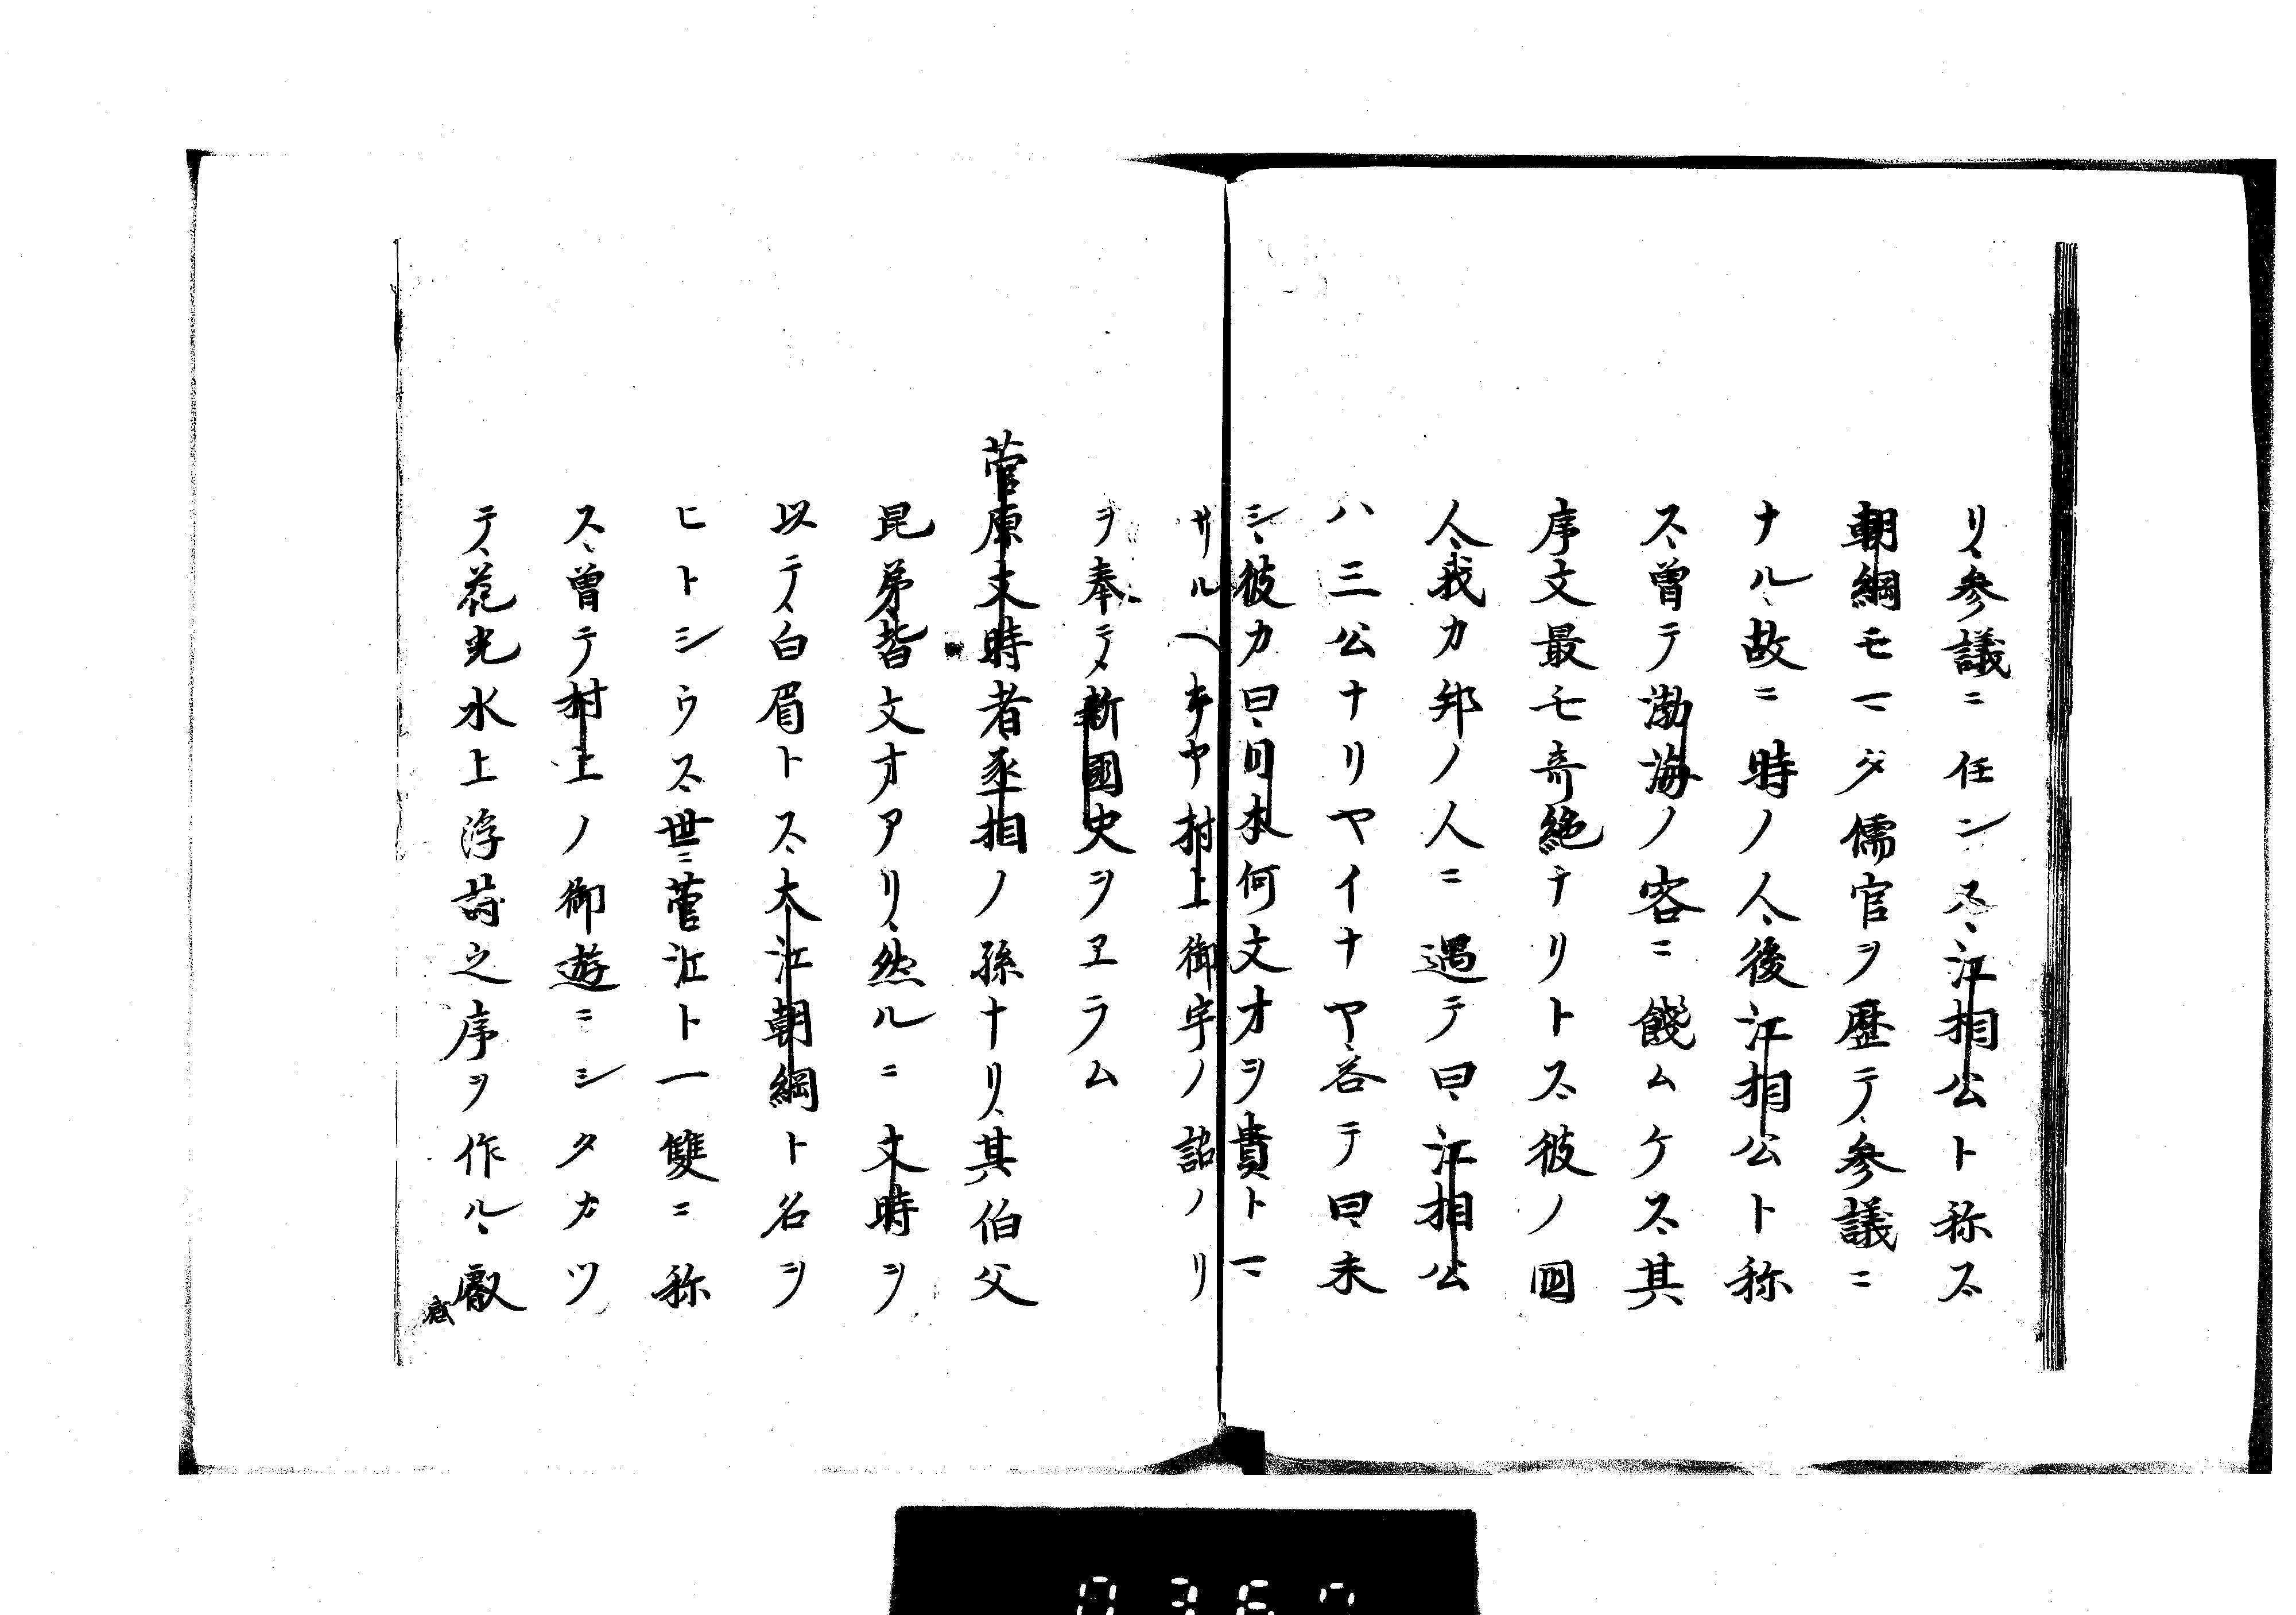 リ、参議ニ任シス、江相公ト称ス
朝綱モマタ儒官ヲ歴テ、参議ニ
ナル、故ニ時ノ人、後江相公ト称
ス、曽テ渤海ノ客ニ餞ムケス、其
序文最モ奇絶ナリトス、彼ノ国
人、我カ邦ノ人ニ遇テ曰、江相公
ハ三公ナリヤイナヤ、答テ曰、未
シ、彼カ曰、日本何文才ヲ貴トマ
サルヘキヤ、村上御宇ノ詔ノリ
ヲ奉テ、新國史ヲヱラム
菅原文時者丞相ノ孫ナリ、其伯父
昆弟皆文才アリ、然ルニ文時ヲ
以テ、白眉トス、大江朝綱ト名ヲ
ヒトシウス、世ニ菅江ト一雙ニ称
ス、曽テ村上ノ御遊ニシタカツ
テ、花光水上浮詩之序ヲ作ル、叡
感